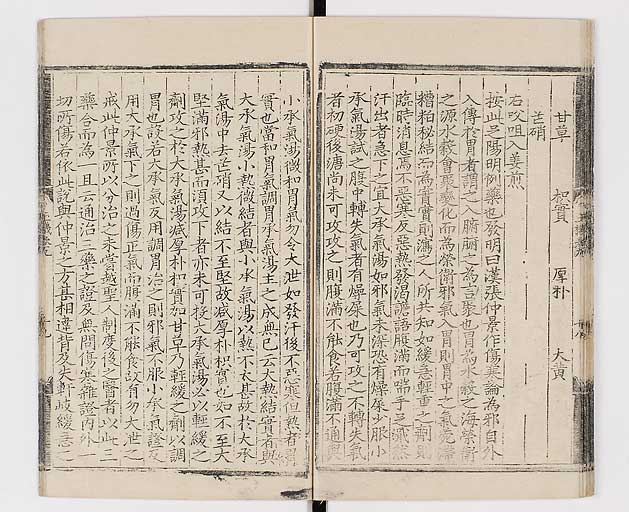 甘草　枳實　厚朴　大黃
芒硝
右㕮咀入姜煎
按此足陽明例藥也發明曰漢張仲景作傷寒論為邪自外
入傳於胃者謂之入腑腑之為言聚也胃為水穀之海榮衛
之源水穀會聚變化而為榮衛邪氣入胃則胃中之氣壅滯
糟粕秘結而為實實則瀉之人所共知如緩急輕重之劑則
臨時消息焉不惡寒反惡熱發渴譫語腹滿而喘手足濈然
汗出者急下之宜大承氣湯如邪氣未深恐有燥屎少服小
承氣湯試之腹中轉失氣者有燥屎也乃可攻之不轉失氣
者初硬後溏尚未可攻攻之則腹滿不能食若腹滿不通與
小承氣湯微和胃氣勿令大泄如發汗後不惡寒但熱者胃
實也當和胃氣調胃承氣湯主之成無已云大熱結實者與
大承氣湯小熱微結者與小承氣湯以熱不大甚故於大承
氣湯中去芒硝又以結不至堅故減厚朴枳實也如不至大
堅滿邪熱甚而須攻下者亦未可投大承氣湯必以輕緩之
劑攻之於大承氣湯減厚朴枳實加甘草乃輕緩之劑以調
胃也設若大承氣反用調胃治之則邪氣不服小承氣證反
用大承氣下之則過傷正氣而腹滿不能食故有勿大泄之
戒此仲景所以分治之未嘗越聖人制度後之醫者以此三
藥合而為一且云通治三藥之證及無問傷寒雜證內外一
切所傷若依此說與仲景之方甚相違背及失軒岐緩急之